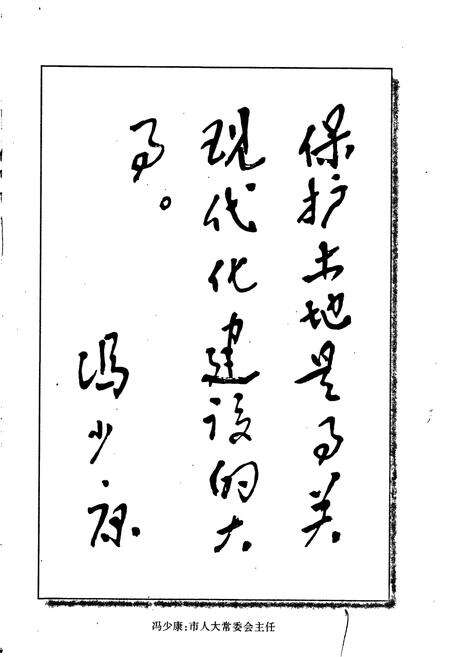 保护土地是事关
现代化建设的大
事。
冯少康
冯少康:市人大常委会主任